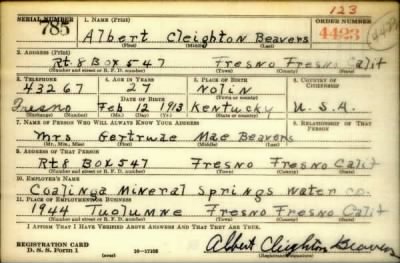 123
SERIAL NUMBER 1. NAME (Print) ORDER NUMBER
785 Albert Cleighton Beavers 4423
(First) (Middle) (Last)
2. ADDRESS (Print)
Rt. 8 Box 547 Fresno Fresno Calif
(Number and street or R. F. D. number) (Town) (County) (State)
3. TELEPHONE 4. AGE IN YEARS 5. PLACE OF BIRTH 6. COUNTRY OF CITIZENSHIP
43267 27 Nolin
DATE OF BIRTH
Fresno Feb 12 1913 Kentucky U. S. A.
(Exchange) (Number) (Mo.) (Day) (Yr.) (State or country)
7. NAME OF PERSON WHO WILL ALWAYS KNOW YOUR ADDRESS 8. RELATIONSHIP OF THAT PERSON
Mrs Gertrude Mae Beavers
(Mr., Mrs., Miss) (First) (Middle) (Last)
9. ADDRESS OF THAT PERSON
Rt 8 Box 547 Fresno Fresno Calif
(Number and street or R. F. D. number) (Town) (County) (State)
10. EMPLOYER'S NAME
Coalinga Mineral Springs Water Co.
11. PLACE OF EMPLOYMENT OR BUSINESS
1944 Tuolumne Fresno Fresno Calif
(Number and street or R. F. D. number) (Town) (County) (State)
I AFFIRM THAT I HAVE VERIFIED ABOVE ANSWERS AND THAT THEY ARE TRUE.
REGISTRATION CARD
D. S. S. Form 1 (over) Albert Cleighton Beavers
(Registrant's signature)